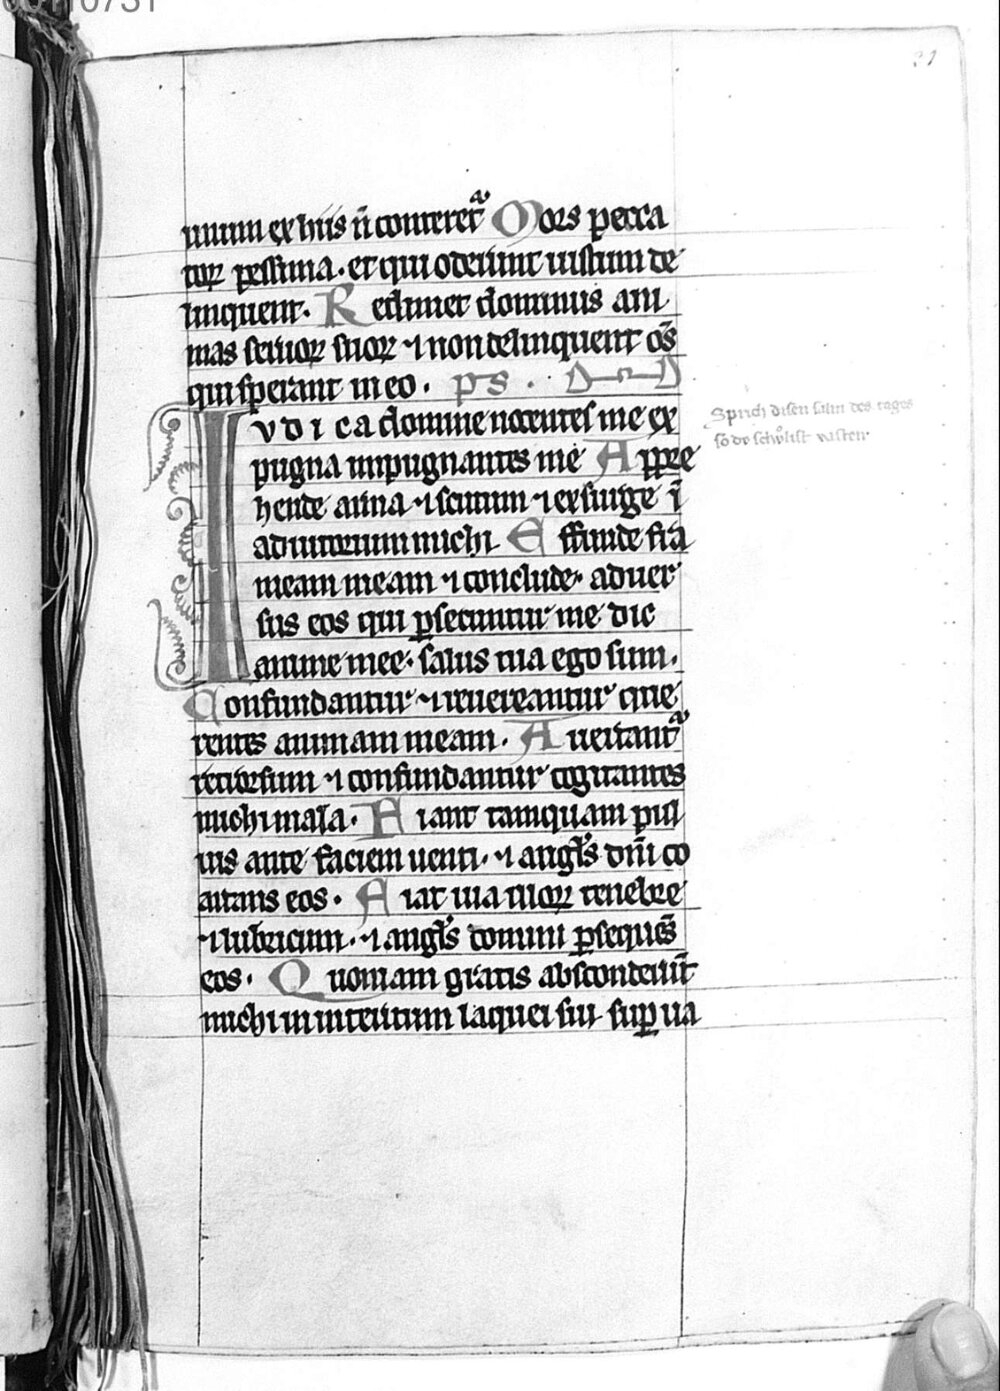 00110731
21
unum ex hiis ñ conteretᷓ Mors pecca
torꝝ pessima · et qui oderunt iustum de
linquent · Redimet dominus ani
mas seruorꝝ suorꝝ ⁊ non delinquent om̄s
qui sperant in eo · ps · D D
Iudica domine nocentes me ex
pugna inpugnantes me Appre
hende arma ⁊ scutum ⁊ exsurge ī
adiutorium michi Effunde frā
meam meam ⁊ conclude · aduer
sus eos qui ꝑsecuntur me dic
anime mee · salus tua ego sum ·
Confundantur ⁊ reuereantur que
rentes animam meam · Auertantᷓ
retrorsum ⁊ confundantur cogitantes
michi mala · Fiant tamquam pul
uis ante faciem uenti · ⁊ angl̄s dn̄i co
artans eos · Fiat uia illorꝝ tenebre
⁊ lubricum · ⁊ angl̄s domini ꝑsequēs
eos · Quoniam gratis absconderūt
michi in interitum laquei sui · suꝑ ua
Sprich disen salm des tages
so dv schölist vasten